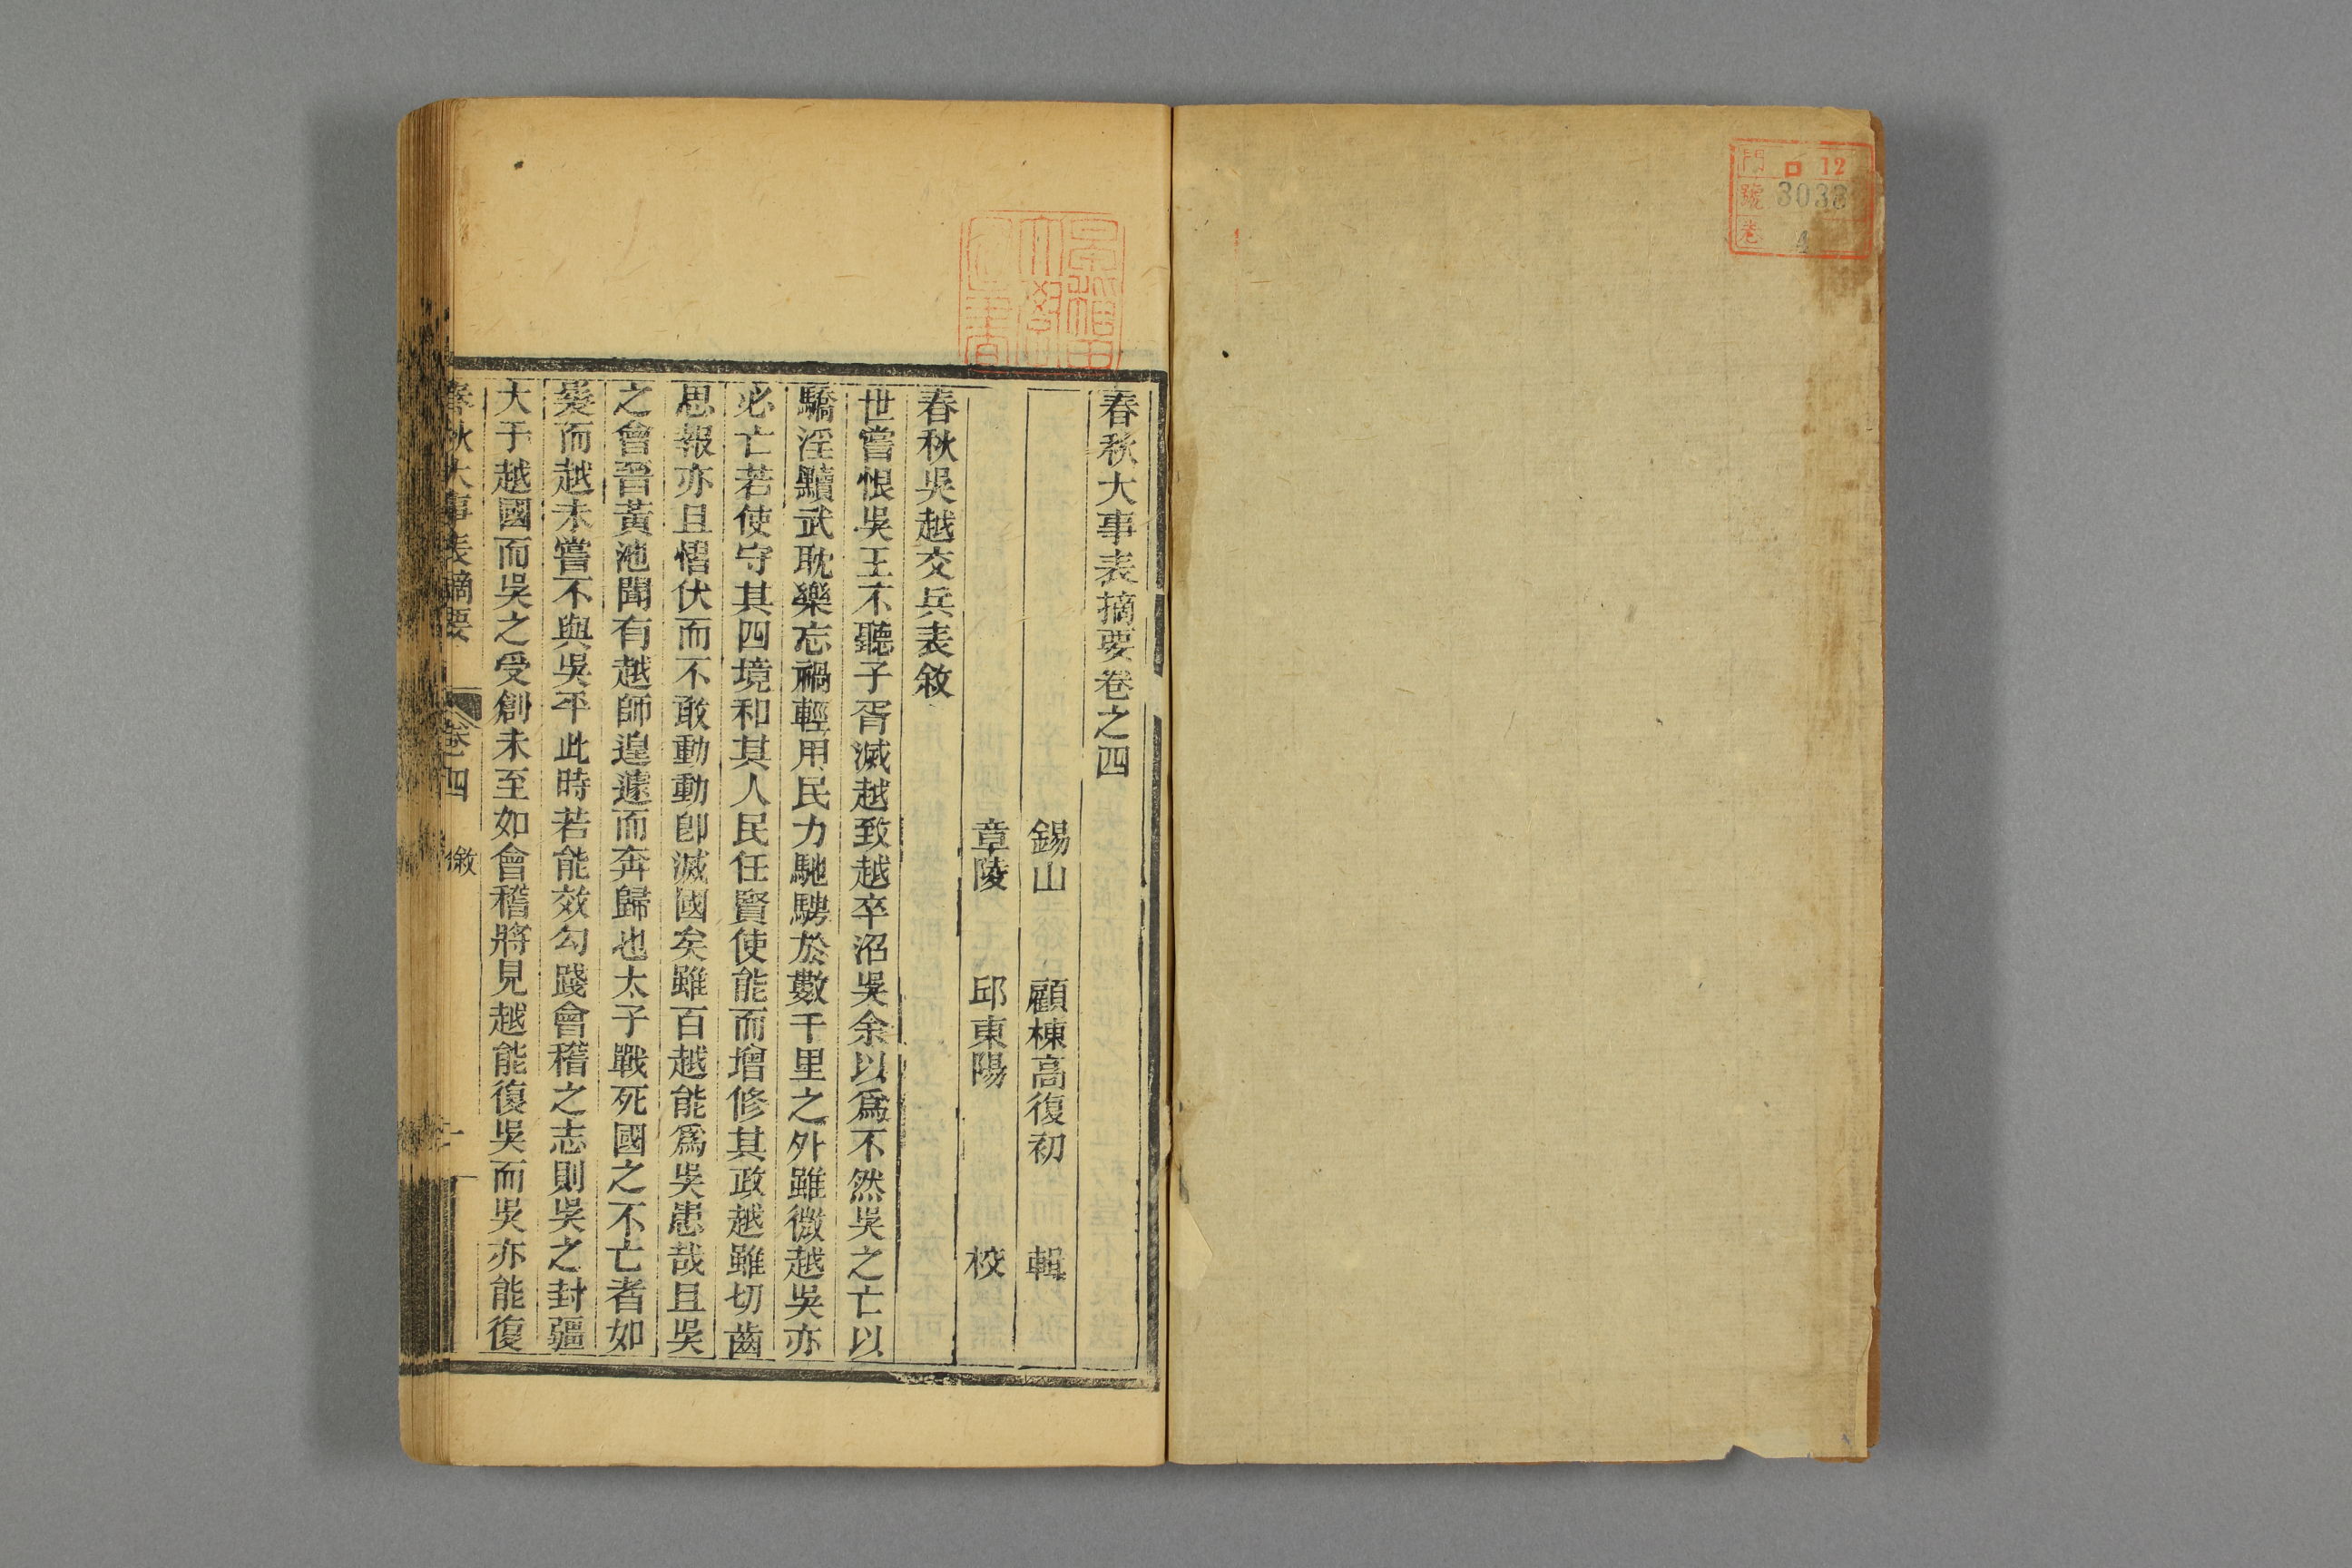 門 ロ 12
號 3038
卷 4
早稻田
大學
圖書
春秋大事表摘要卷之四
錫山 顧棟高復初 輯
章陵 邱東陽 校
春秋吳越交兵表敘
世嘗恨吳王不聽子胥滅越致越卒沼吳余以爲不然吳之亡以
驕淫黷武耽樂忘禍輕用民力馳騁於數千里之外雖微越吳亦
必亡若使守其四境和其人民任賢使能而增修其政越雖切齒
思報亦且慴伏而不敢動動卽滅國矣雖百越能爲吳患哉且吳
之會晉黃池聞有越師遑遽而奔歸也太子戰死國之不亡者如
髮而越未嘗不與吳平此時若能效勾踐會稽之志則吳之封疆
大于越國而吳之受創未至如會稽將見越能復吳而吳亦能復
春秋大事表摘要 卷四 敘 一